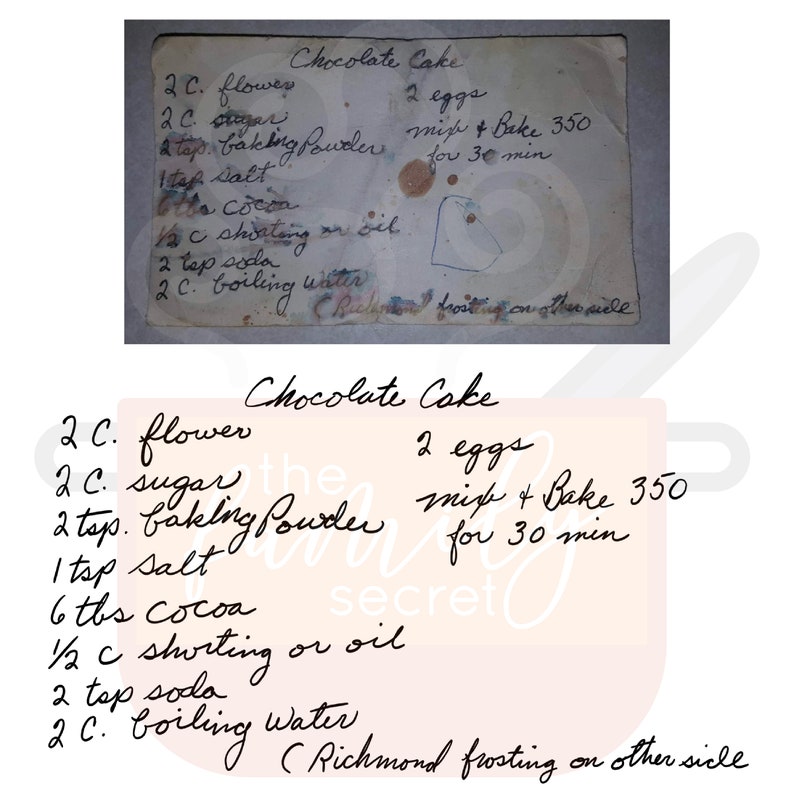 Chocolate Cake
2 C. flower
2 C. sugar
2 tsp. baking Powder
1 tsp salt
6 tbs cocoa
1/2 c shorting or oil
2 tsp soda
2 C. boiling Water
2 eggs
mix + Bake 350
for 30 min
( Richmond frosting on other side
Chocolate Cake
2 C. flower
2 C. sugar
2 tsp. baking Powder
1 tsp salt
6 tbs cocoa
1/2 c shorting or oil
2 tsp soda
2 C. boiling Water
2 eggs
mix + Bake 350
for 30 min
( Richmond frosting on other side
the
family
secret